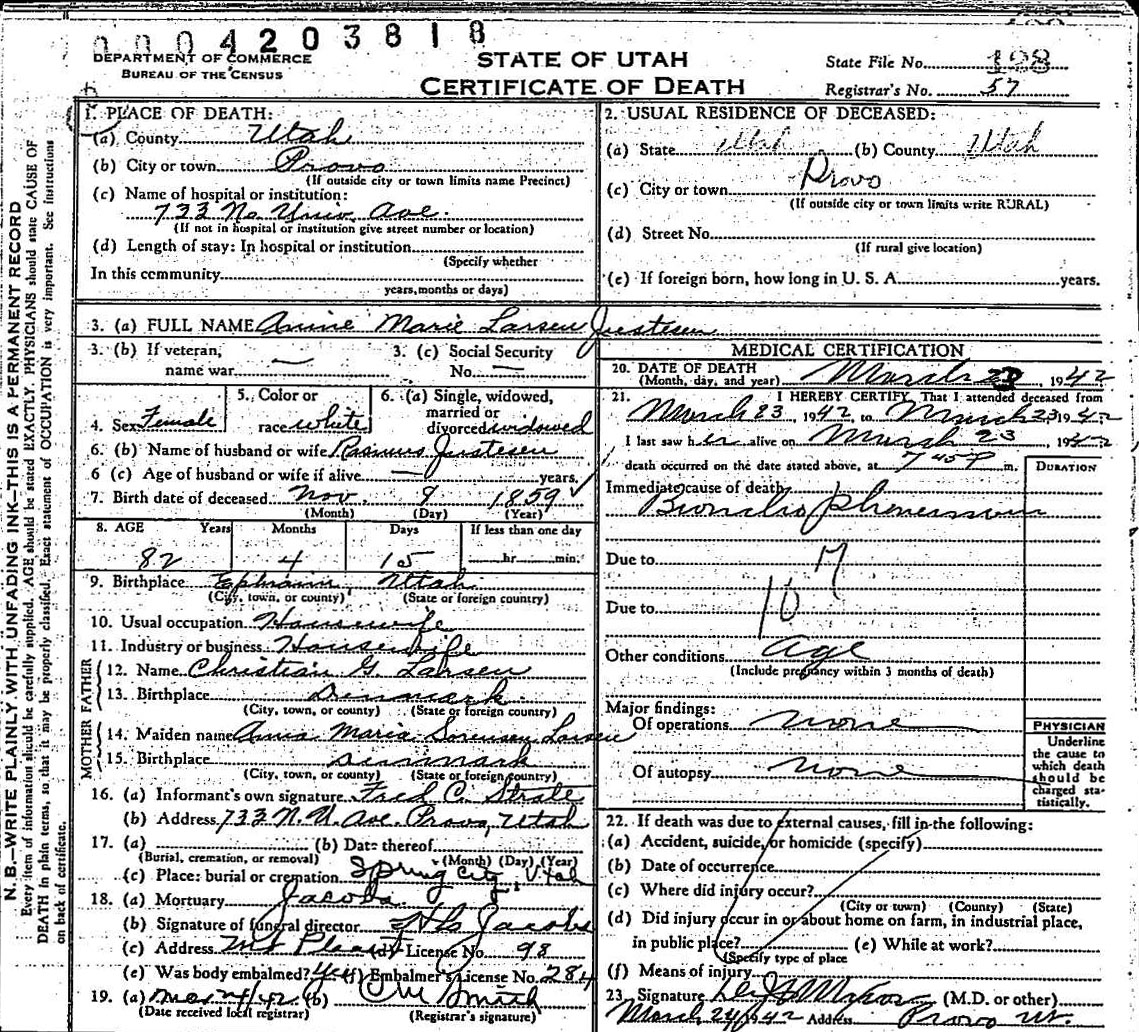 0004203818
DEPARTMENT OF COMMERCE
BUREAU OF THE CENSUS
STATE OF UTAH
CERTIFICATE OF DEATH
State File No. 198
Registrar's No. 57
N. B.—WRITE PLAINLY, WITH UNFADING INK—THIS IS A PERMANENT RECORD
Every item of information should be carefully supplied. AGE should be stated EXACTLY. PHYSICIANS should state CAUSE OF
DEATH in plain terms, so that it may be properly classified. Exact statement of OCCUPATION is very important. See instructions
on back of certificate.
1. PLACE OF DEATH:
(a) County Utah
(b) City or town Provo
(If outside city or town limits name Precinct)
(c) Name of hospital or institution:
733 No Univ. Ave.
(If not in hospital or institution give street number or location)
(d) Length of stay: In hospital or institution
(Specify whether
In this community
years, months or days)
2. USUAL RESIDENCE OF DECEASED:
(a) State Utah (b) County Utah
(c) City or town Provo
(If outside city or town limits write RURAL)
(d) Street No.
(If rural give location)
(e) If foreign born, how long in U. S. A. years.
3. (a) FULL NAME Annie Marie Larsen Justesen
3. (b) If veteran, name war —
3. (c) Social Security No. —
4. Sex Female
5. Color or race white
6. (a) Single, widowed, married or divorced widowed
6. (b) Name of husband or wife Rasmus Justesen
6 (c) Age of husband or wife if alive — years.
7. Birth date of deceased Nov. 8 1859
(Month) (Day) (Year)
8. AGE Years Months Days If less than one day
82 4 15 hr. min.
9. Birthplace Ephraim Utah
(City, town, or county) (State or foreign country)
10. Usual occupation Housewife
11. Industry or business Housewife
FATHER
12. Name Christian G. Larsen
13. Birthplace Denmark
(City, town, or county) (State or foreign country)
MOTHER
14. Maiden name Annia Maria Sorensen Larsen
15. Birthplace Denmark
(City, town, or county) (State or foreign country)
16. (a) Informant's own signature Fred C. Strate
(b) Address 733 N. U. Ave. Provo, Utah
17. (a) (b) Date thereof
(Burial, cremation, or removal) (Month) (Day) (Year)
(c) Place: burial or cremation Spring City, Utah
18. (a) Mortuary Jacobs
(b) Signature of funeral director Jacobs
(c) Address Mt Pleasant (d) License No. 98
(e) Was body embalmed? (f) Embalmer's License No. 284
19. (a) Mar 24/42 (b) C W Smith
(Date received local registrar) (Registrar's signature)
MEDICAL CERTIFICATION
20. DATE OF DEATH
(Month, day, and year) March 23, 1942
21. I HEREBY CERTIFY, That I attended deceased from
March 23, 1942, to March 23 1942
I last saw her alive on March 23, 1942
death occurred on the date stated above, at 7 45 P m.
DURATION
Immediate cause of death
Broncho pneumonia
Due to
Due to
Other conditions age
(Include pregnancy within 3 months of death)
Major findings:
Of operations none
Of autopsy none
PHYSICIAN
Underline
the cause to
which death
should be
charged sta-
tistically.
22. If death was due to external causes, fill in the following:
(a) Accident, suicide, or homicide (specify)
(b) Date of occurrence
(c) Where did injury occur?
(City or town) (County) (State)
(d) Did injury occur in or about home on farm, in industrial place,
in public place? (e) While at work?
(Specify type of place
(f) Means of injury
23. Signature (M.D. or other)
March 24 1942 Address Provo Ut.